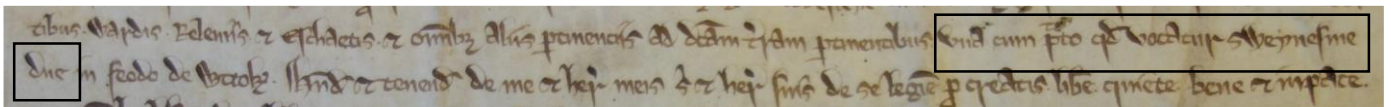 tibus Wardis Releviis & Eschaetis & om̄ibȝ aliis ptinenciis ad dc̄am t'ram ptinentibus una cum p̃to qd̄ vocatur sweynesme
due in feodo de Wttok. Hnd̄ & tenend̄ de me & her̄ meis s̄ & her̄ suis de se legiē pcreatis libe quiete bene & in pace